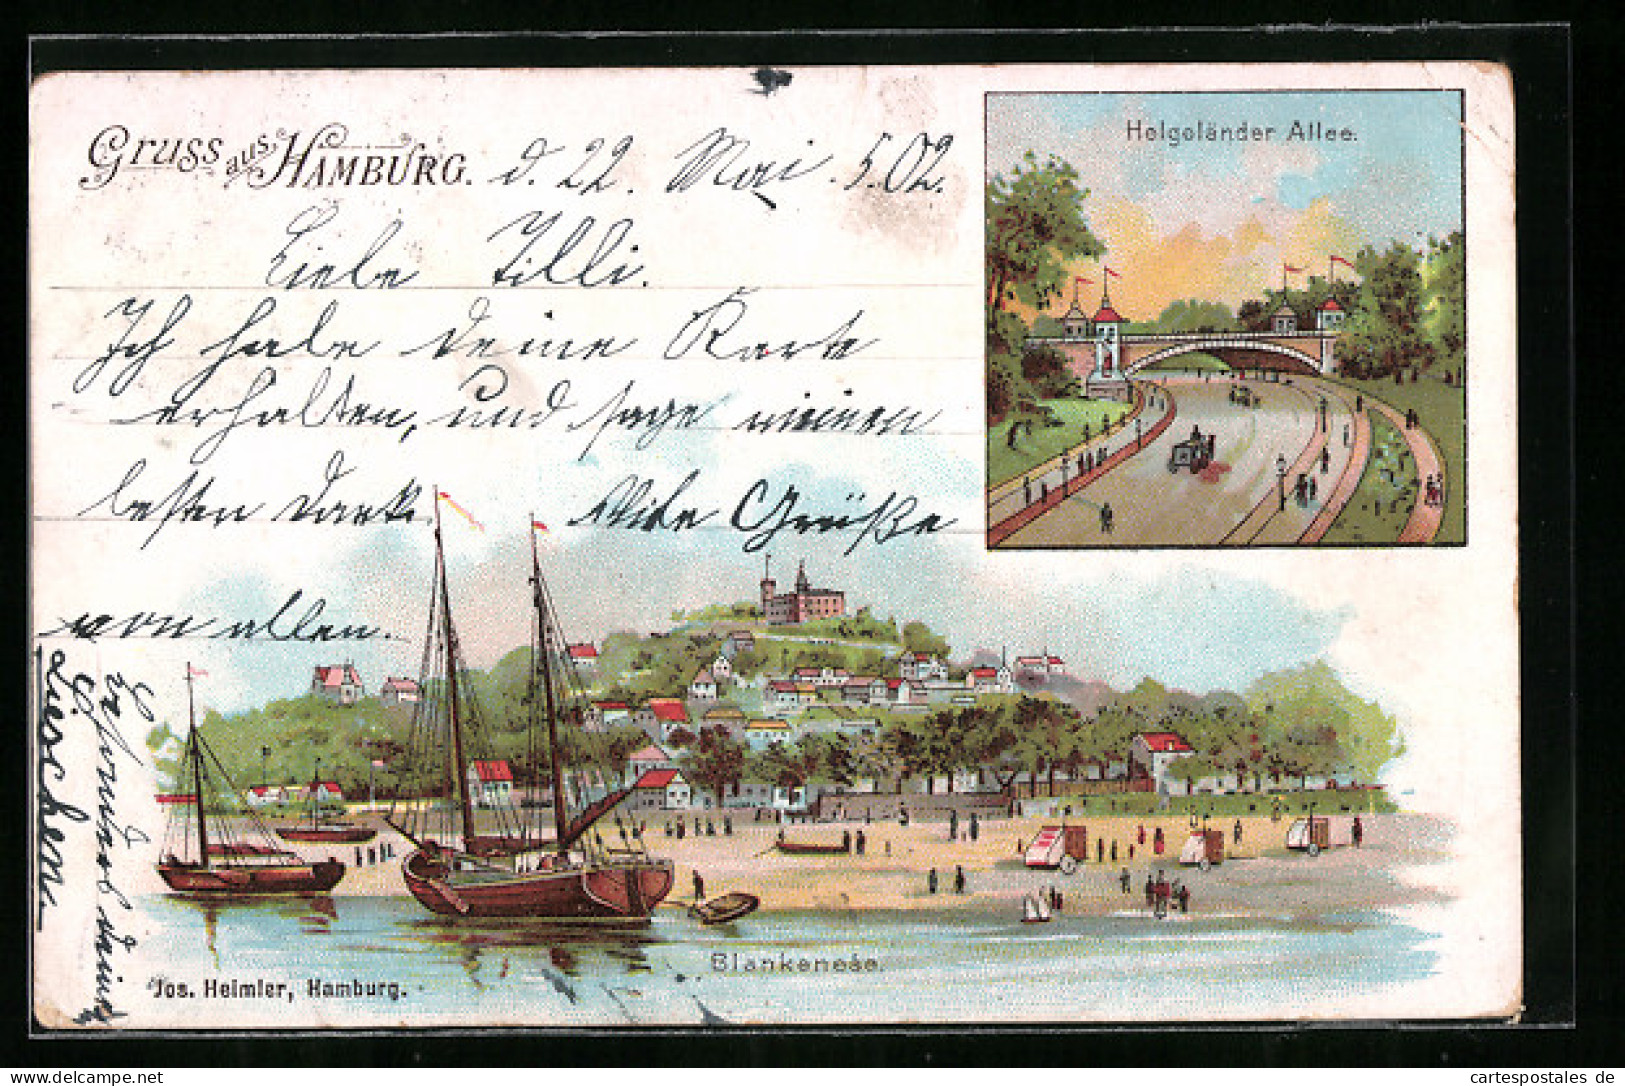 Gruss aus Hamburg. d. 22. Mai. 5.02.
Liebe Tilli.
Ich habe deine Karte
erhalten, und sage meinen
besten Dank. Viele Grüße
von allen.
Lieschen
Helgoländer Allee.
Blankenese.
Jos. Heimler, Hamburg.
delcampe.net
cartespostales de